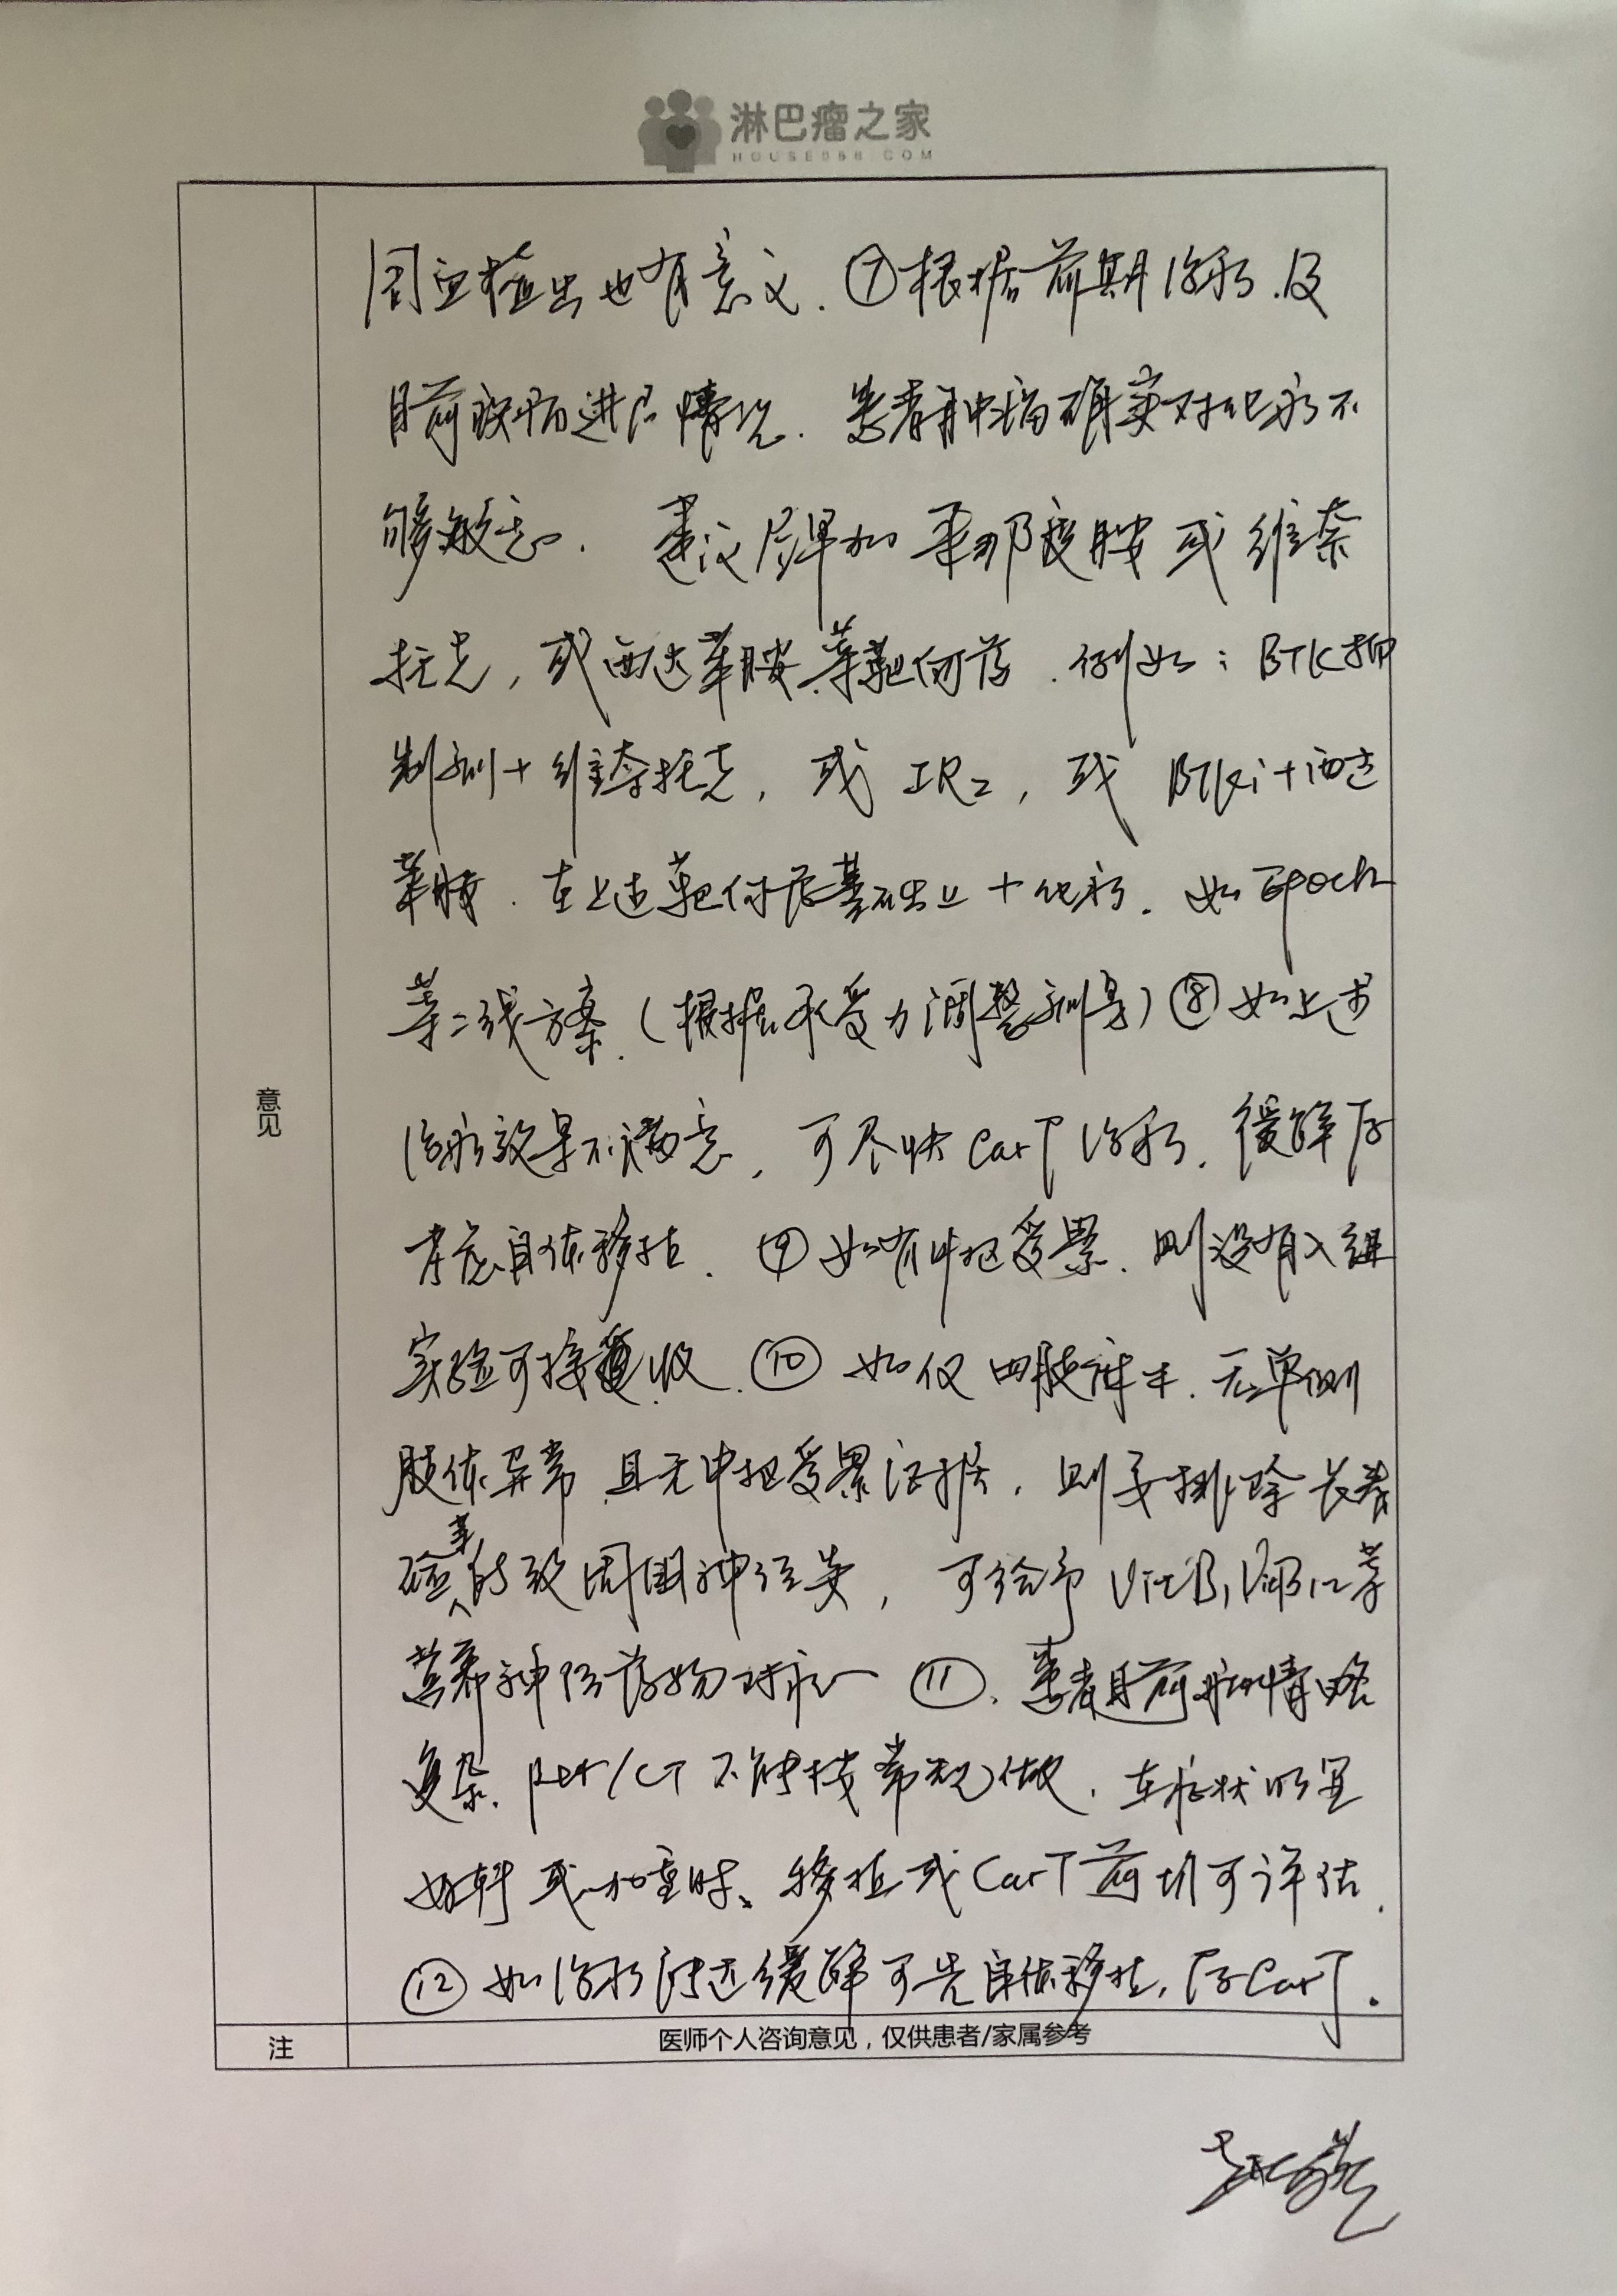 淋巴瘤之家
HOUSE086.COM
周血检出也有意义. ⑦根据前期治疗.及
目前疾病进展情况. 患者肿瘤确实对化疗不
够敏感. 建议尽早加来那度胺或维奈
托克, 或西达苯胺等靶向药. 例如: BTK抑
制剂+维奈托克, 或IR2, 或 BTKi+西达
苯胺. 在上述靶向药基础上+化疗. 如Epoch
等二线方案.(根据承受力调整剂量)⑧如上述
治疗效果不满意, 可尽快CarT治疗. 缓解后
考虑自体移植. ⑨如有中枢受累. 则没有入组
实验可接收. ⑩ 如仅四肢麻木. 无单侧
肢体异常 且无中枢受累证据, 则要排除长春
碱类所致周围神经炎, 可给予VitB1 VitB12等
营养神经药物对症 ⑪. 患者目前病情略
复杂. Pet/CT 不能按常规做. 在症状明显
好转或加重时、移植或CarT前均可评估.
⑫如治疗后达缓解可先自体移植, 后CarT.
意见
注
医师个人咨询意见,仅供患者/家属参考